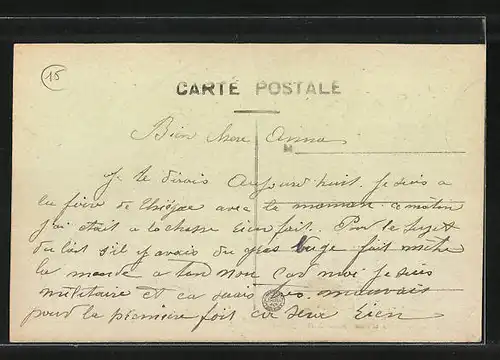 15
CARTE POSTALE
Bien chere Anna
M
Je te dirais Aujourd'huit. Je suis a
la foire de avec le maman ce matin
j'ai etait a la chasse Eien fait. Pour le sujet
du lait s'il y avais du gros luige fait mettre
la mande a ton nom Car moi je suis
militaire et ca serais tres mauvais
pour la premiere foit car seur Eien